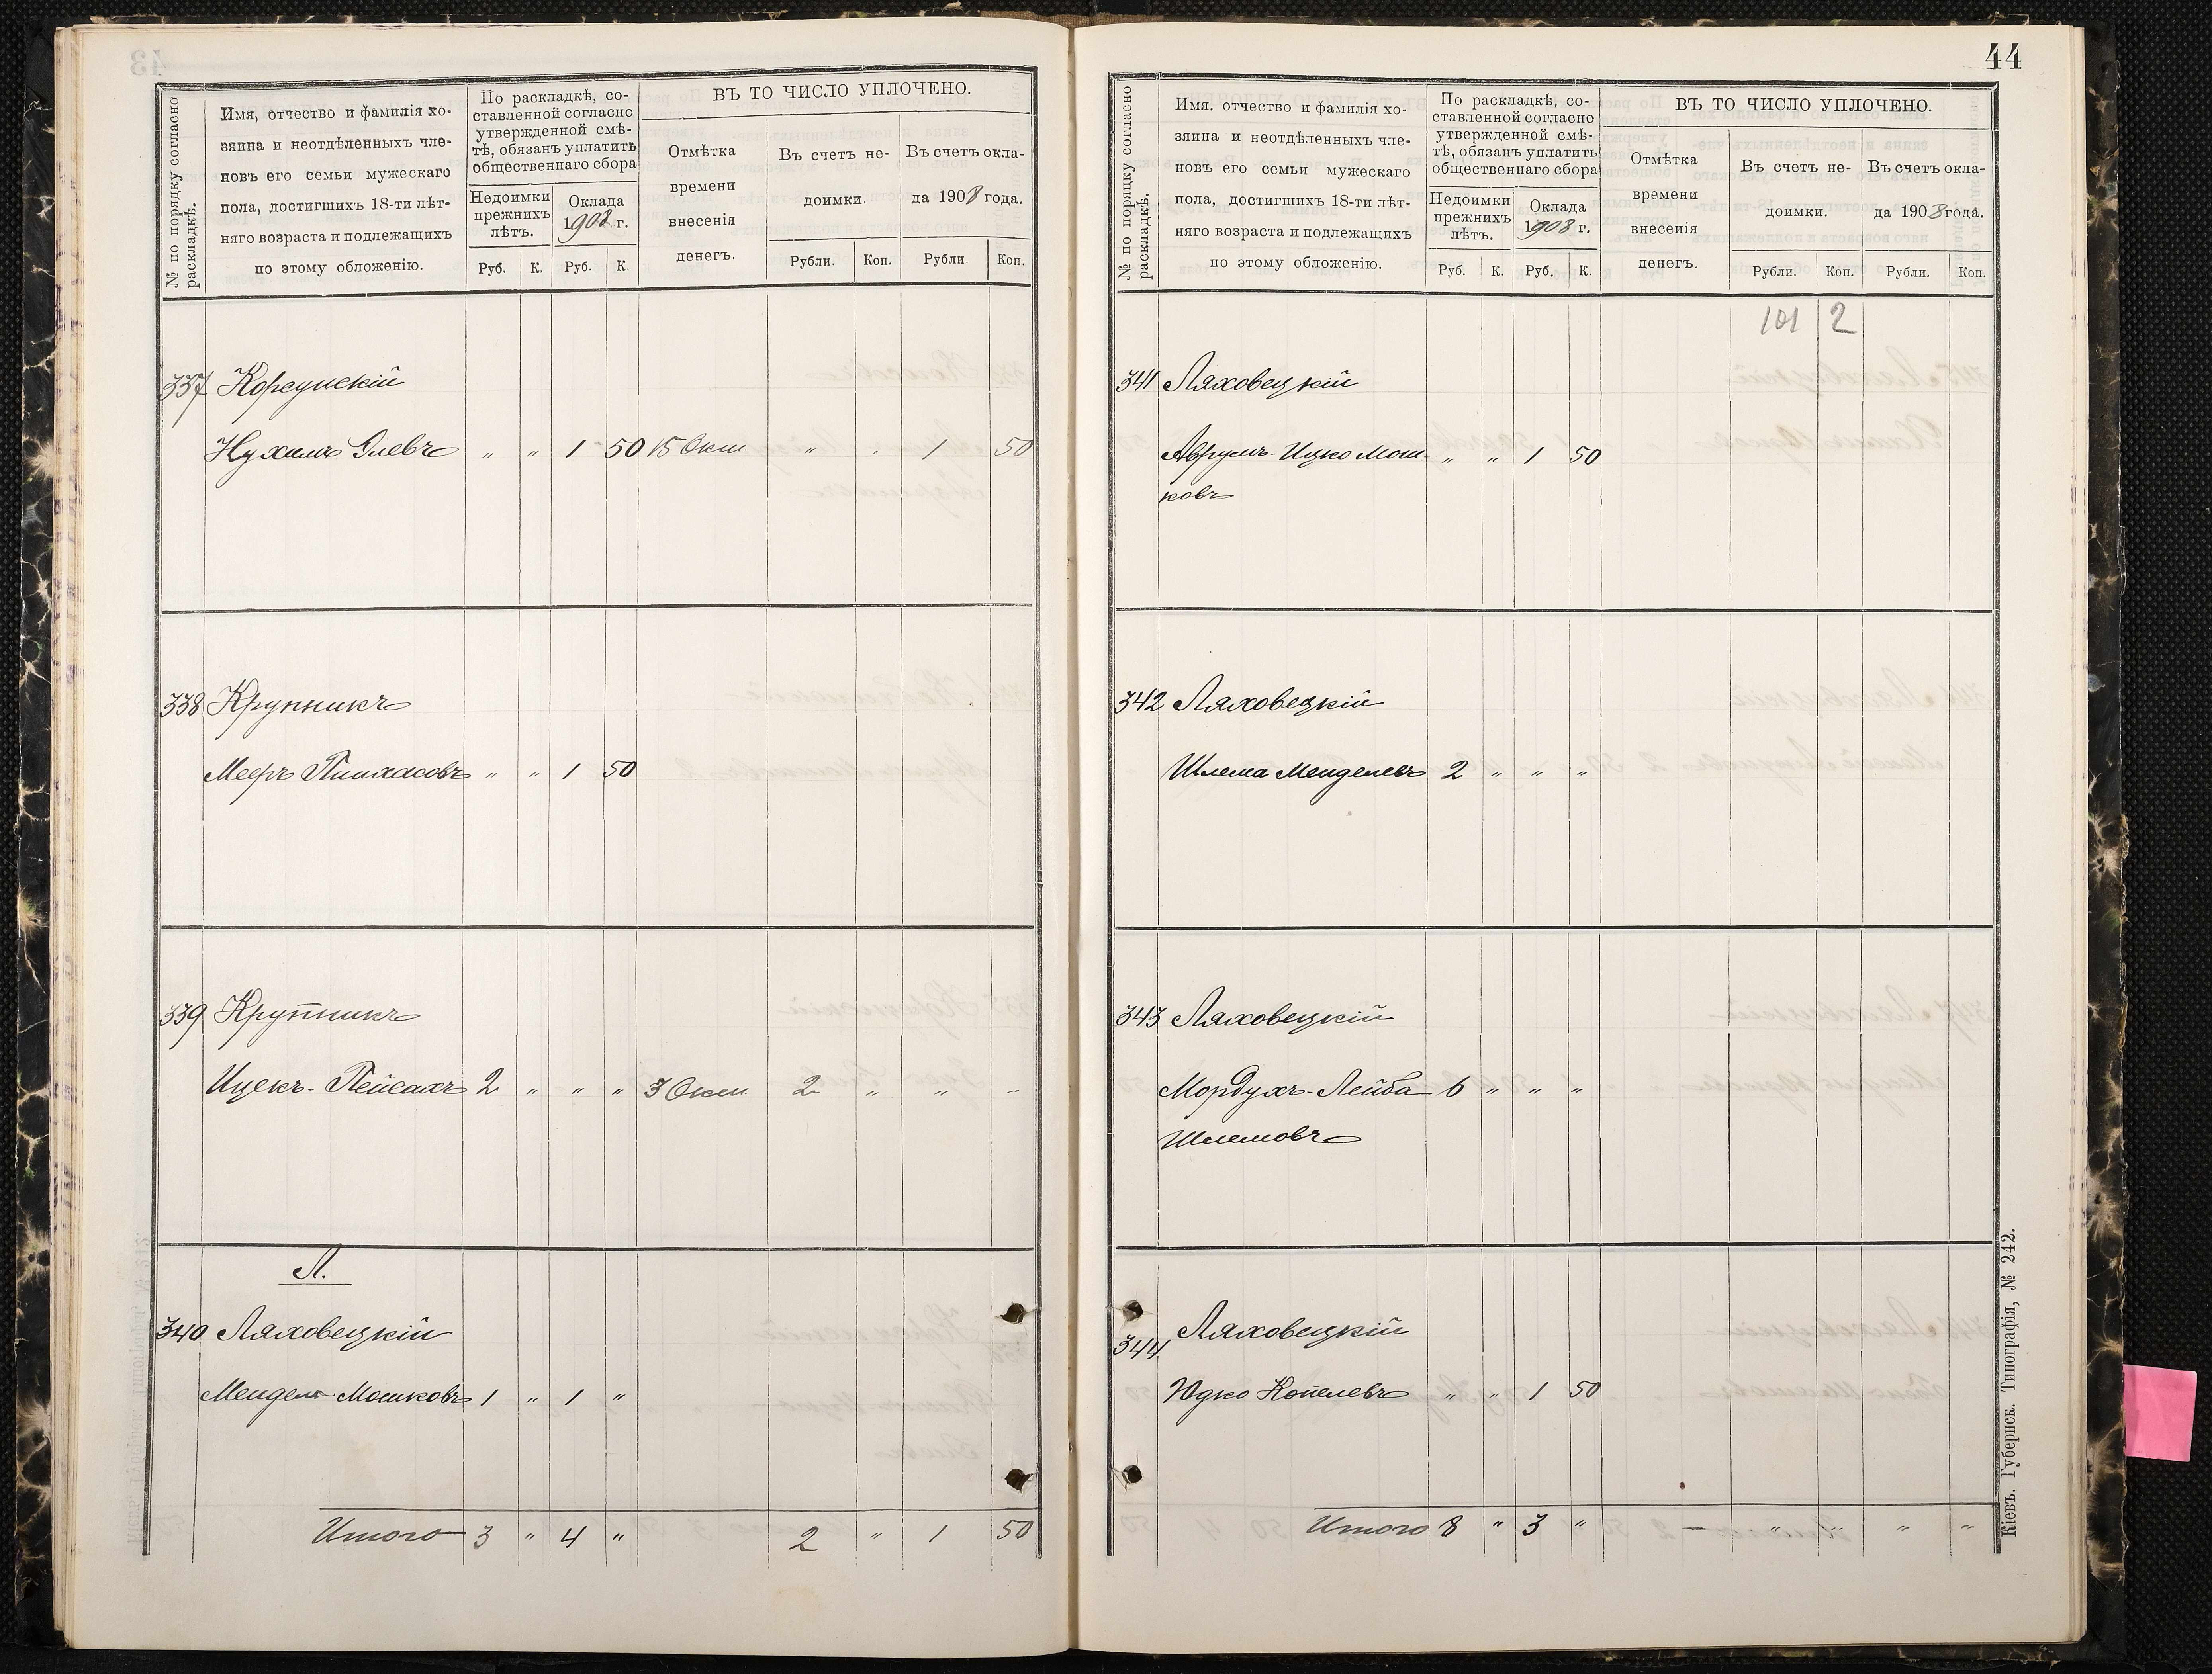 № по порядку согласно
раскладкѣ.
Имя, отчество и фамилія хо-
зяина и неотдѣленныхъ чле-
новъ его семьи мужескаго
пола, достигшихъ 18-ти лѣт-
няго возраста и подлежащихъ
по этому обложенію.
По раскладкѣ, со-
ставленной согласно
утвержденной смѣ-
тѣ, обязанъ уплатить
общественнаго сбора
Недоимки
прежнихъ
лѣтъ.
Оклада
1908 г.
Руб. К. Руб. К.
ВЪ ТО ЧИСЛО УПЛОЧЕНО.
Отмѣтка
времени
внесенія
денегъ.
Въ счетъ не-
доимки.
Въ счетъ окла-
да 1908 года.
Рубли. Коп. Рубли. Коп.
337 Корсунскій
Нухимъ Элевъ " " 1 50 15 Окт " " 1 50
338 Крупникъ
Мееръ Пинхасовъ " " 1 50
339 Крупникъ
Ицекъ-Пейсахъ 2 " " " 3 Окт 2 " " "
Л.
340 Ляховецкій
Мендель Мошковъ 1 " 1 "
Итого 3 " 4 " 2 " 1 50
44
№ по порядку согласно
раскладкѣ.
Имя. отчество и фамилія хо-
зяина и неотдѣленныхъ чле-
новъ его семьи мужескаго
пола, достигшихъ 18-ти лѣт-
няго возраста и подлежащихъ
по этому обложенію.
По раскладкѣ, со-
ставленной согласно
утвержденной смѣ-
тѣ, обязанъ уплатить
общественнаго сбора
Недоимки
прежнихъ
лѣтъ.
Оклада
1908 г.
Руб. К. Руб. К.
ВЪ ТО ЧИСЛО УПЛОЧЕНО.
Отмѣтка
времени
внесенія
денегъ.
Въ счетъ не-
доимки.
Въ счетъ окла-
да 1908 года.
Рубли. Коп. Рубли. Коп.
101 2
341 Ляховецкій
Аврумъ-Ицко Мош- " " 1 50
ковъ
342 Ляховецкій
Шлема Менделевъ 2 " " "
343 Ляховецкій
Мордухъ-Лейба 6 " " "
Шлемовъ
344 Ляховецкій
Юдко Копелевъ " " 1 50
Итого 8 " 3 " — " " " "
Кіевъ. Губернск. Типографія, № 242.